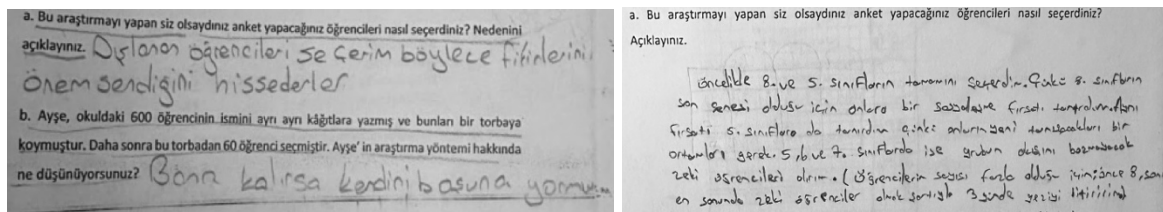 a. Bu araştırmayı yapan siz olsaydınız anket yapacağınız öğrencileri nasıl seçerdiniz? Nedenini
açıklayınız. Dışlanan öğrencileri seçerim böylece fikirlerini
önemsendiğini hissederler
b. Ayşe, okuldaki 600 öğrencinin ismini ayrı ayrı kâğıtlara yazmış ve bunları bir torbaya
koymuştur. Daha sonra bu torbadan 60 öğrenci seçmiştir. Ayşe' in araştırma yöntemi hakkında
ne düşünüyorsunuz? Bana kalırsa kendini başuna
a. Bu araştırmayı yapan siz olsaydınız anket yapacağınız öğrencileri nasıl seçerdiniz?
Açıklayınız.
öncelikle 8. ve 5. sınıfların tamamını seçerdim. Çünkü 8. sınıfların
son senesi olduğu için onlara bir fırsatı
fırsatı 5. sınıflara da tanırdım çünki onların yeni tanışacakları bir
gerek. 5, 6 ve 7. sınıflarda ise grubun bozmayacak
zeki öğrencileri alırım. (Öğrencilerin sayısı fazla olduğu için; önce 8, son
en sonunda zeki öğrenciler olmak şartıyla 3 günde geziyi bitiririm)